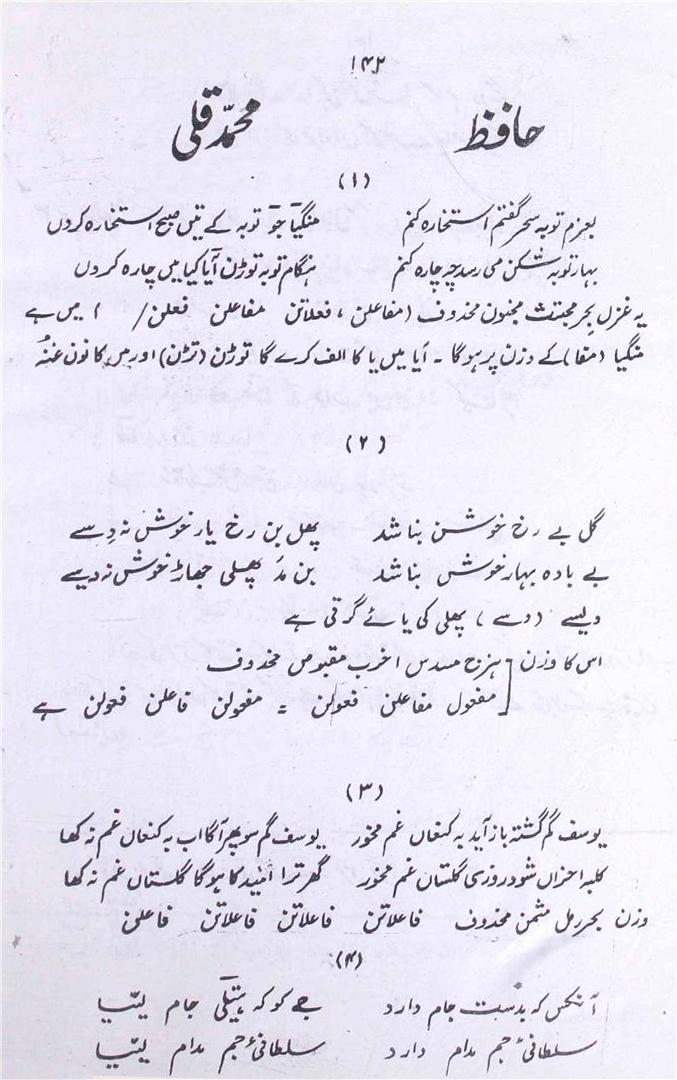 ۱۴۲
حافظ محمّد قلی
(۱)
بعزم توبہ سحر گفتم استخارہ کنم منگیا جو توبہ کے تیں صبح استخارہ کروں
بہار توبہ شکن می رسد چہ چارہ کنم ہنگام توبہ توڑن آیا کیا میں چارہ کروں
یہ غزل بحر مجتث مجنون محذوف (مفاعلن، فعلاتن مفاعلن فعلن / ) میں ہے
منگیا (مفا) کے وزن پر ہوگا ۔ آیا میں یا کا الف کرے گا توڑن (تڑن) اور میں کا نون غنہ
(۲)
گل بے رخ خوشن بناشد پھل بن رخ یار خوش نہ دِسے
بے بادہ بہار خوش بناشد بن مد پھلی جھاڑ خوش نہ دیسے
دیسے (دسے) پھلی کی یائے گرتی ہے
اس کا وزن [ ہزج مسدس اخرب مقبوض محذوف
مفعول مفاعلن فعولن = مفعولن فاعلن فعولن ہے
(۳)
یوسف گم گشتہ باز آید بہ کنعاں غم مخور یوسف گم سو پھر آگا اب بہ کنعاں غم نہ کھا
کلبہ احزاں شود روزی گلستاں غم مخور گھر ترا امّید کا ہوگا گلستاں غم نہ کھا
وزن بحر رمل مثمن محذوف فاعلاتن فاعلاتن فاعلاتن فاعلن
(۴)
آنکس کہ بدست جام دارد جے کو کہ ہتیلی جام لیتیا
سلطانیٔ جم مدام دارد سلطانیٔ جم مدام لیتیا